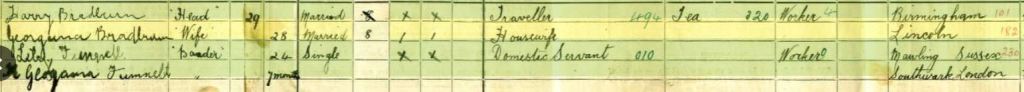 Harry Bradburn "Head" 29 Married x x x Traveller 494 Tea 220 Worker 4 Birmingham 101
Georgina Bradburn "Wife" 28 Married 8 1 1 Housewife Lincoln 182
"Boader" 24 Single x x Domestic Servant 010 Worker Sussex 230
" 7 month Southwark London